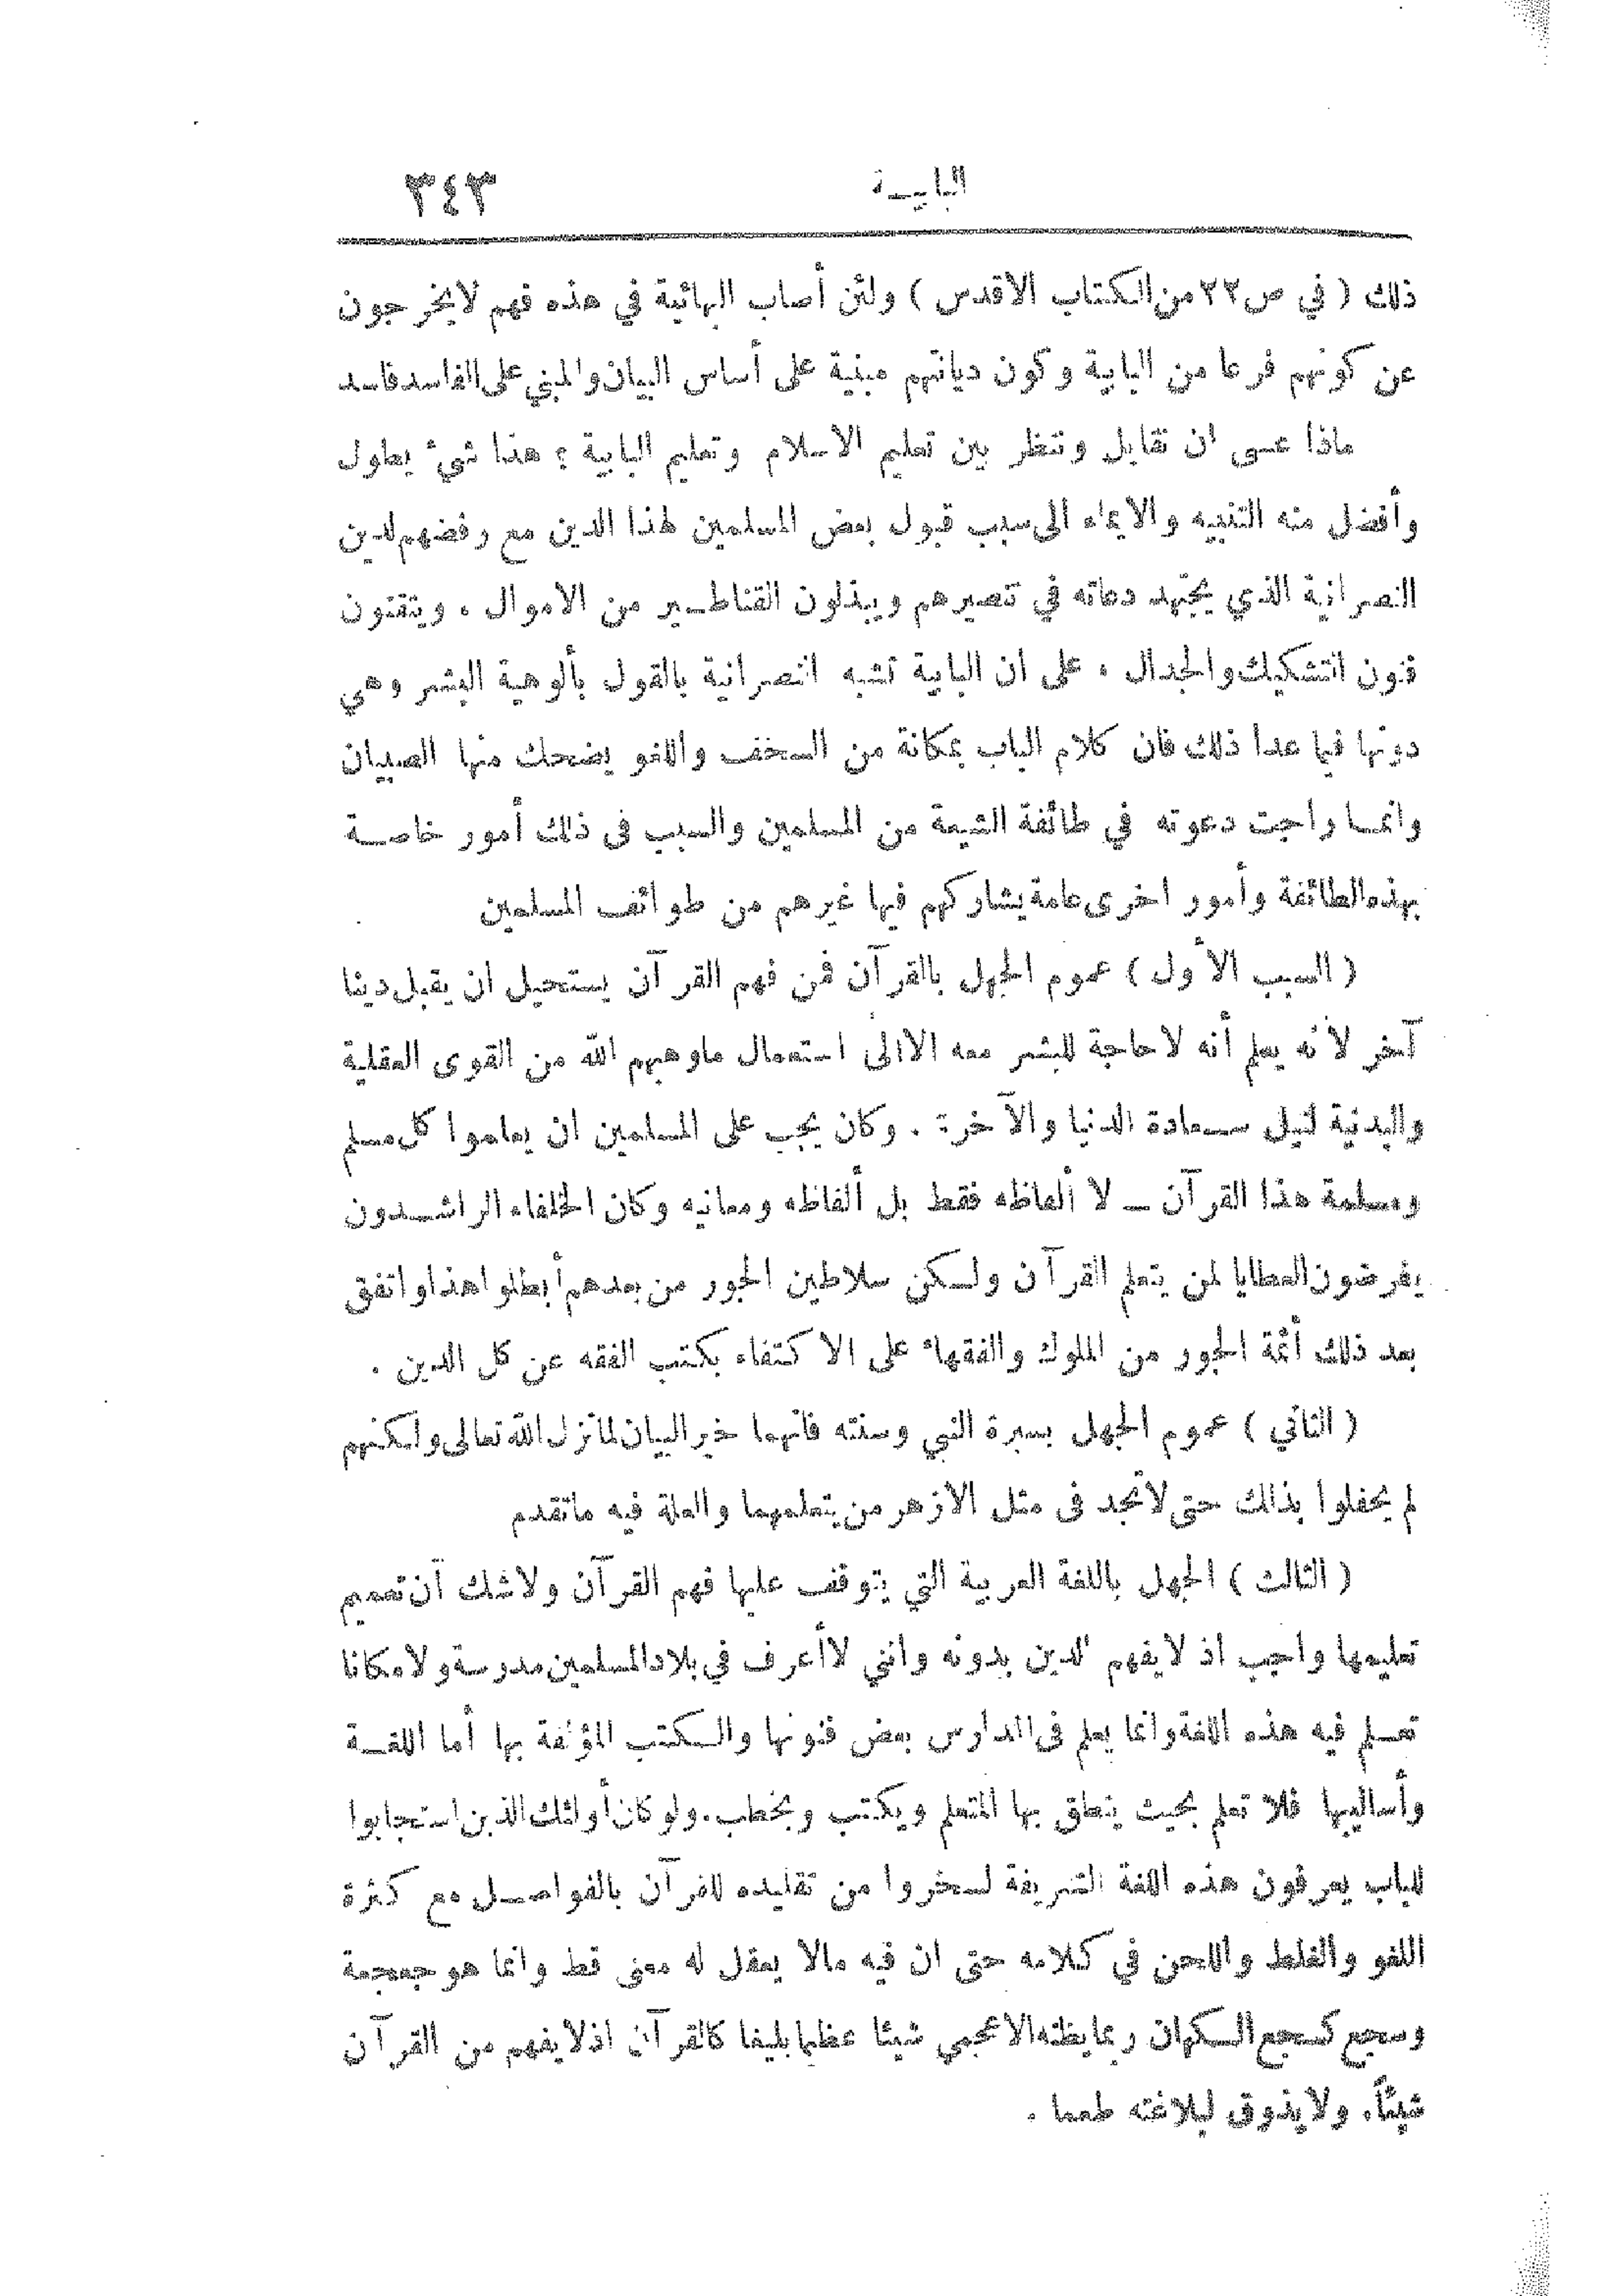 البابيــة ٣٤٣
ذلك ( في ص ٢٢ من الكتاب الاقدس ) ولئن أصاب البهائية في هذه فهم لايخرجون
عن كونهم فرعا من البابية وكون ديانتهم مبنية على أساس البيان والمبني على الفاسد فاسد
ماذا عسى ان نقابل وننظر بين تعليم الاسلام وتعليم البابية ؟ هذا شيء يطول
وأفضل منه التنبيه والايماء الى سبب قبول بعض المسلمين لهذا الدين مع رفضهم لدين
النصرانية الذي يجتهد دعاته في تنصيرهم ويبذلون القناطــير من الاموال ، ويتقنون
فنون التشكيك والجدال ، على ان البابية تشبه النصرانية بالقول بألوهية البشر وهي
دونها فيما عدا ذلك فان كلام الباب بمكانة من السخف واللغو يضحك منها الصبيان
وانمــا راجت دعوته في طائفة الشيعة من المسلمين والسبب فى ذلك أمور خاصــة
بهذه الطائفة وأمور اخرى عامة يشاركهم فيها غيرهم من طوائف المسلمين
( السبب الأول ) عموم الجهل بالقرآن فمن فهم القرآن يستحيل ان يقبل دينا
آخر لأنه يعلم أنه لاحاجة للبشر معه الاالى استعمال ماوهبهم الله من القوى العقلية
والبدنية لنيل ســعادة الدنيا والآخرة . وكان يجب على المسلمين ان يعلموا كل مسلم
ومسلمة هذا القرآن ـ لا ألفاظه فقط بل ألفاظه ومعانيه وكان الخلفاء الراشــدون
يفرضون العطايا لمن يتعلم القرآن ولــكن سلاطين الجور من بعدهم أبطلوا هذا واتفق
بعد ذلك أئمة الجور من الملوك والفقهاء على الاكتفاء بكتب الفقه عن كل الدين .
( الثاني ) عموم الجهل بسيرة النبي وسنته فانهما خير البيان لما نزل الله تعالى ولكنهم
لم يحفلوا بذلك حتى لاتجد فى مثل الازهر من يتعلمهما والعلة فيه ماتقدم
( الثالث ) الجهل باللغة العربية التي يتوقف عليها فهم القرآن ولاشك أن تعميم
تعليمها واجب اذ لايفهم الدين بدونه وانني لاأعرف في بلاد المسلمين مدرسة ولا مكانا
تعــلم فيه هذه اللغة وانما يعلم فى المدارس بعض فنونها والــكتب المؤلفة بها أما اللغــة
وأساليبها فلا تعلم بحيث ينطق بها المتعلم ويكتب ويخطب . ولو كان أولئك الذين استجابوا
للباب يعرفون هذه اللغة الشريفة لسخروا من تقليده للقرآن بالفواصــل مع كثرة
اللغو والغلط واللحن في كلامه حتى ان فيه مالا يعقل له معنى قط وانما هو جعجعة
وسجع كسجع الــكهان ربما يظنه الاعجمي شيئا عظيما بليغا كالقرآن اذ لايفهم من القرآن
شيئاً . ولا يذوق لبلاغته طعما .